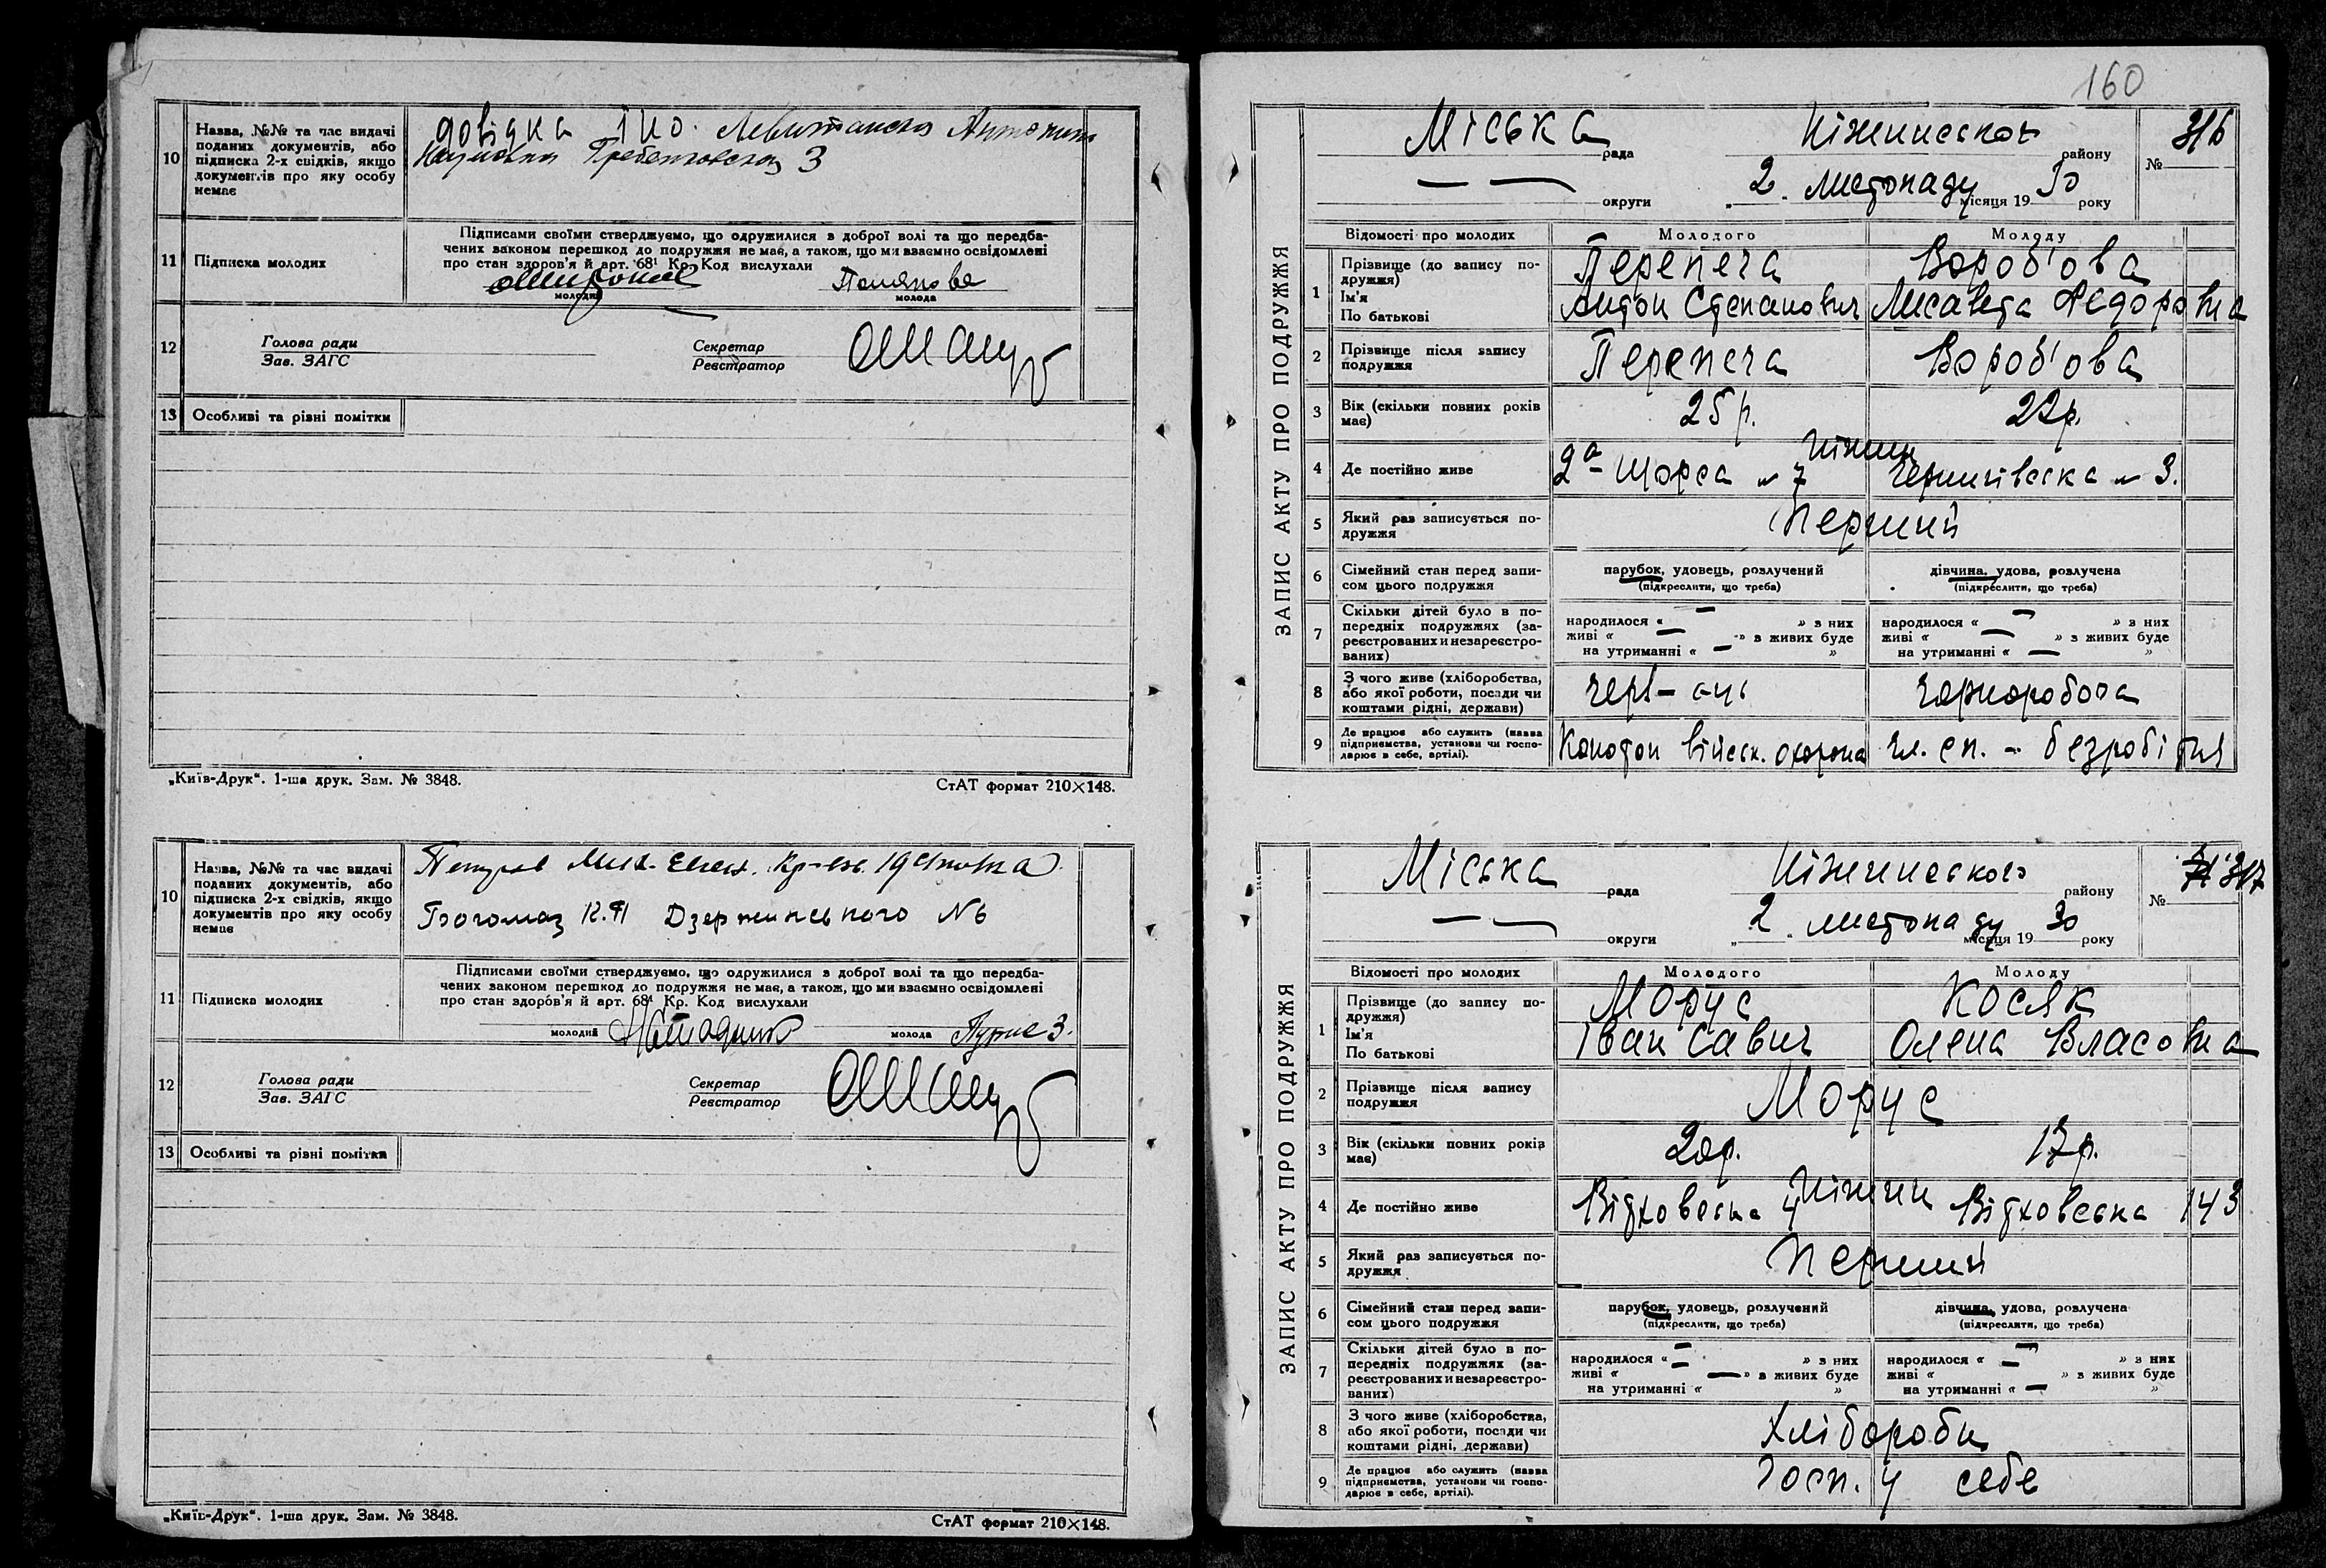 10
Назва, №№ та час видачі
поданих документів, або
підписка 2-х свідків, якщо
документів про яку особу
немає
довідка ІНО.
3
11
Підписка молодих
Підписами своїми стверджуємо, що одружилися з доброї волі та що передба-
чених законом перешкод до подружжя не має, а також, що ми взаємно освідомлені
про стан здоров'я й арт. 68¹ Кр. Код вислухали
молодий
молода
12
Голова ради
Зав. ЗАГС
Секретар
Реєстратор
13
Особливі та рівні помітки
„Київ-Друк“. 1-ша друк. Зам. № 3848.
СтАТ формат 210×148.
10
Назва, №№ та час видачі
поданих документів, або
підписка 2-х свідків, якщо
документів про яку особу
немає
Богомаз К.Я Дзержинського №6
11
Підписка молодих
Підписами своїми стверджуємо, що одружилися з доброї волі та що передба-
чених законом перешкод до подружжя не має, а також, що ми взаємно освідомлені
про стан здоров'я й арт. 68¹ Кр. Код вислухали
молодий
молода
12
Голова ради
Зав. ЗАГС
Секретар
Реєстратор
13
Особливі та рівні помітки
„Київ-Друк“. 1-ша друк. Зам. № 3848.
СтАТ формат 210×148.
160
ЗАПИС АКТУ ПРО ПОДРУЖЖЯ
Міська рада Ніжинського району № 316
— — округи „ 2 . листопаду місяця 19 30 року
Відомості про молодих
Молодого
Молоду
1
Прізвище (до запису по-
дружжя)
Ім'я
По батькові
Перепеча
Вороб'ова
Антон Степанович
Лисавета Федоровна
2
Прізвище після запису
подружжя
Перепеча
Вороб'ова
3
Вік (скільки повних років
має)
25 р.
22 р.
4
Де постійно живе
Ніжин
2а Щорса № 7
Чернигівська № 3.
5
Який раз записується по-
дружжя
Перший
6
Сімейний стан перед запи-
сом цього подружжя
парубок, удовець, розлучений
(підкреслити, що треба)
дівчина, удова, розлучена
(підкреслити, що треба)
7
Скільки дітей було в по-
передніх подружжях (за-
реєстрованих и незареєстро-
ваних)
народилося « — » з них
живі « — » з живих буде
на утриманні « — »
народилося « — » з них
живі « — » з живих буде
на утриманні « — »
8
З чого живе (хліборобства,
або якої роботи, посади чи
коштами рідні, держави)
чорноробоча
9
Де працює або служить (назва
підприємства, установи чи госпо-
дарює в себе, артілі).
Конотоп військ. охорона
чл. сп. - безробітня
ЗАПИС АКТУ ПРО ПОДРУЖЖЯ
Міська рада Ніжинського району № 317
— — округи „ 2 . листопаду місяця 19 30 року
Відомості про молодих
Молодого
Молоду
1
Прізвище (до запису по-
дружжя)
Ім'я
По батькові
Морус
Косяк
Іван Савич
Олена Власовна
2
Прізвище після запису
подружжя
Морус
3
Вік (скільки повних років
має)
20р.
17р.
4
Де постійно живе
Ніжин
Вітховська 4
Вітховська 143
5
Який раз записується по-
дружжя
Перший
6
Сімейний стан перед запи-
сом цього подружжя
парубок, удовець, розлучений
(підкреслити, що треба)
дівчина, удова, розлучена
(підкреслити, що треба)
7
Скільки дітей було в по-
передніх подружжях (за-
реєстрованих и незареєстро-
ваних)
народилося « — » з них
живі « — » з живих буде
на утриманні « »
народилося « — » з них
живі « — » з живих буде
на утриманні « — »
8
З чого живе (хліборобства,
або якої роботи, посади чи
коштами рідні, держави)
Хлібороби
9
Де працює або служить (назва
підприємства, установи чи госпо-
дарює в себе, артілі).
Госп. у себе